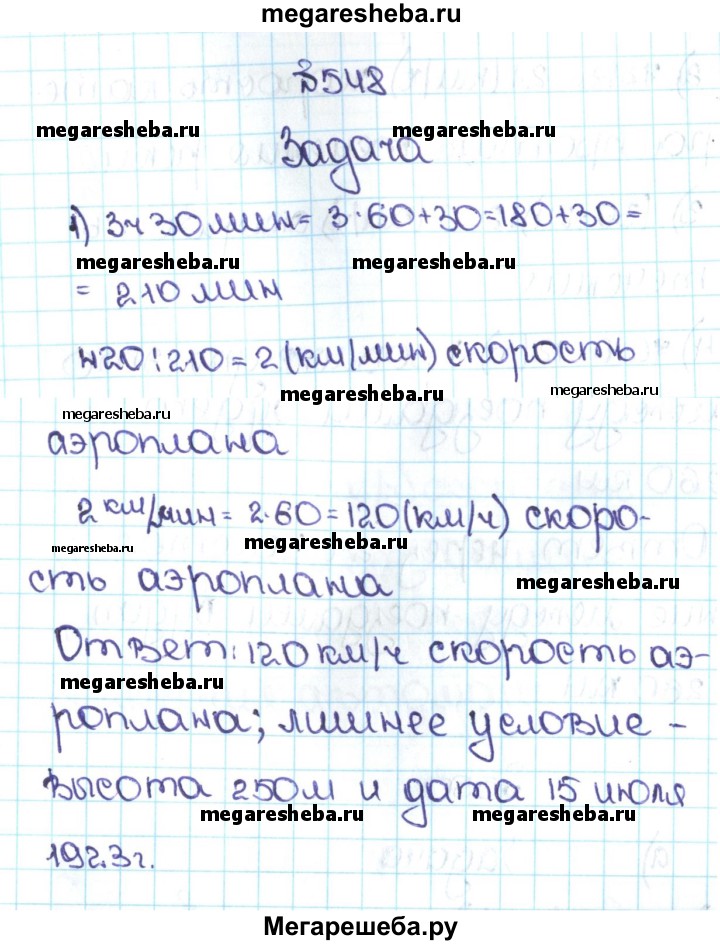 megaresheba.ru
№548
megaresheba.ru
megaresheba.ru
Задача
1) 3ч 30 мин = 3·60+30=180+30=
megaresheba.ru
megaresheba.ru
= 210 мин
420:210=2(км/мин) скорость
megaresheba.ru
megaresheba.ru
megaresheba.ru
аэроплана
2 км/мин = 2·60=120(км/ч) скоро-
megaresheba.ru
megaresheba.ru
сть аэроплана
megaresheba.ru
Ответ: 120 км/ч скорость аэ-
megaresheba.ru
роплана; лишнее условие -
высота 250м и дата 15 июля
megaresheba.ru
megaresheba.ru
1923г.
Мегарешеба.ру